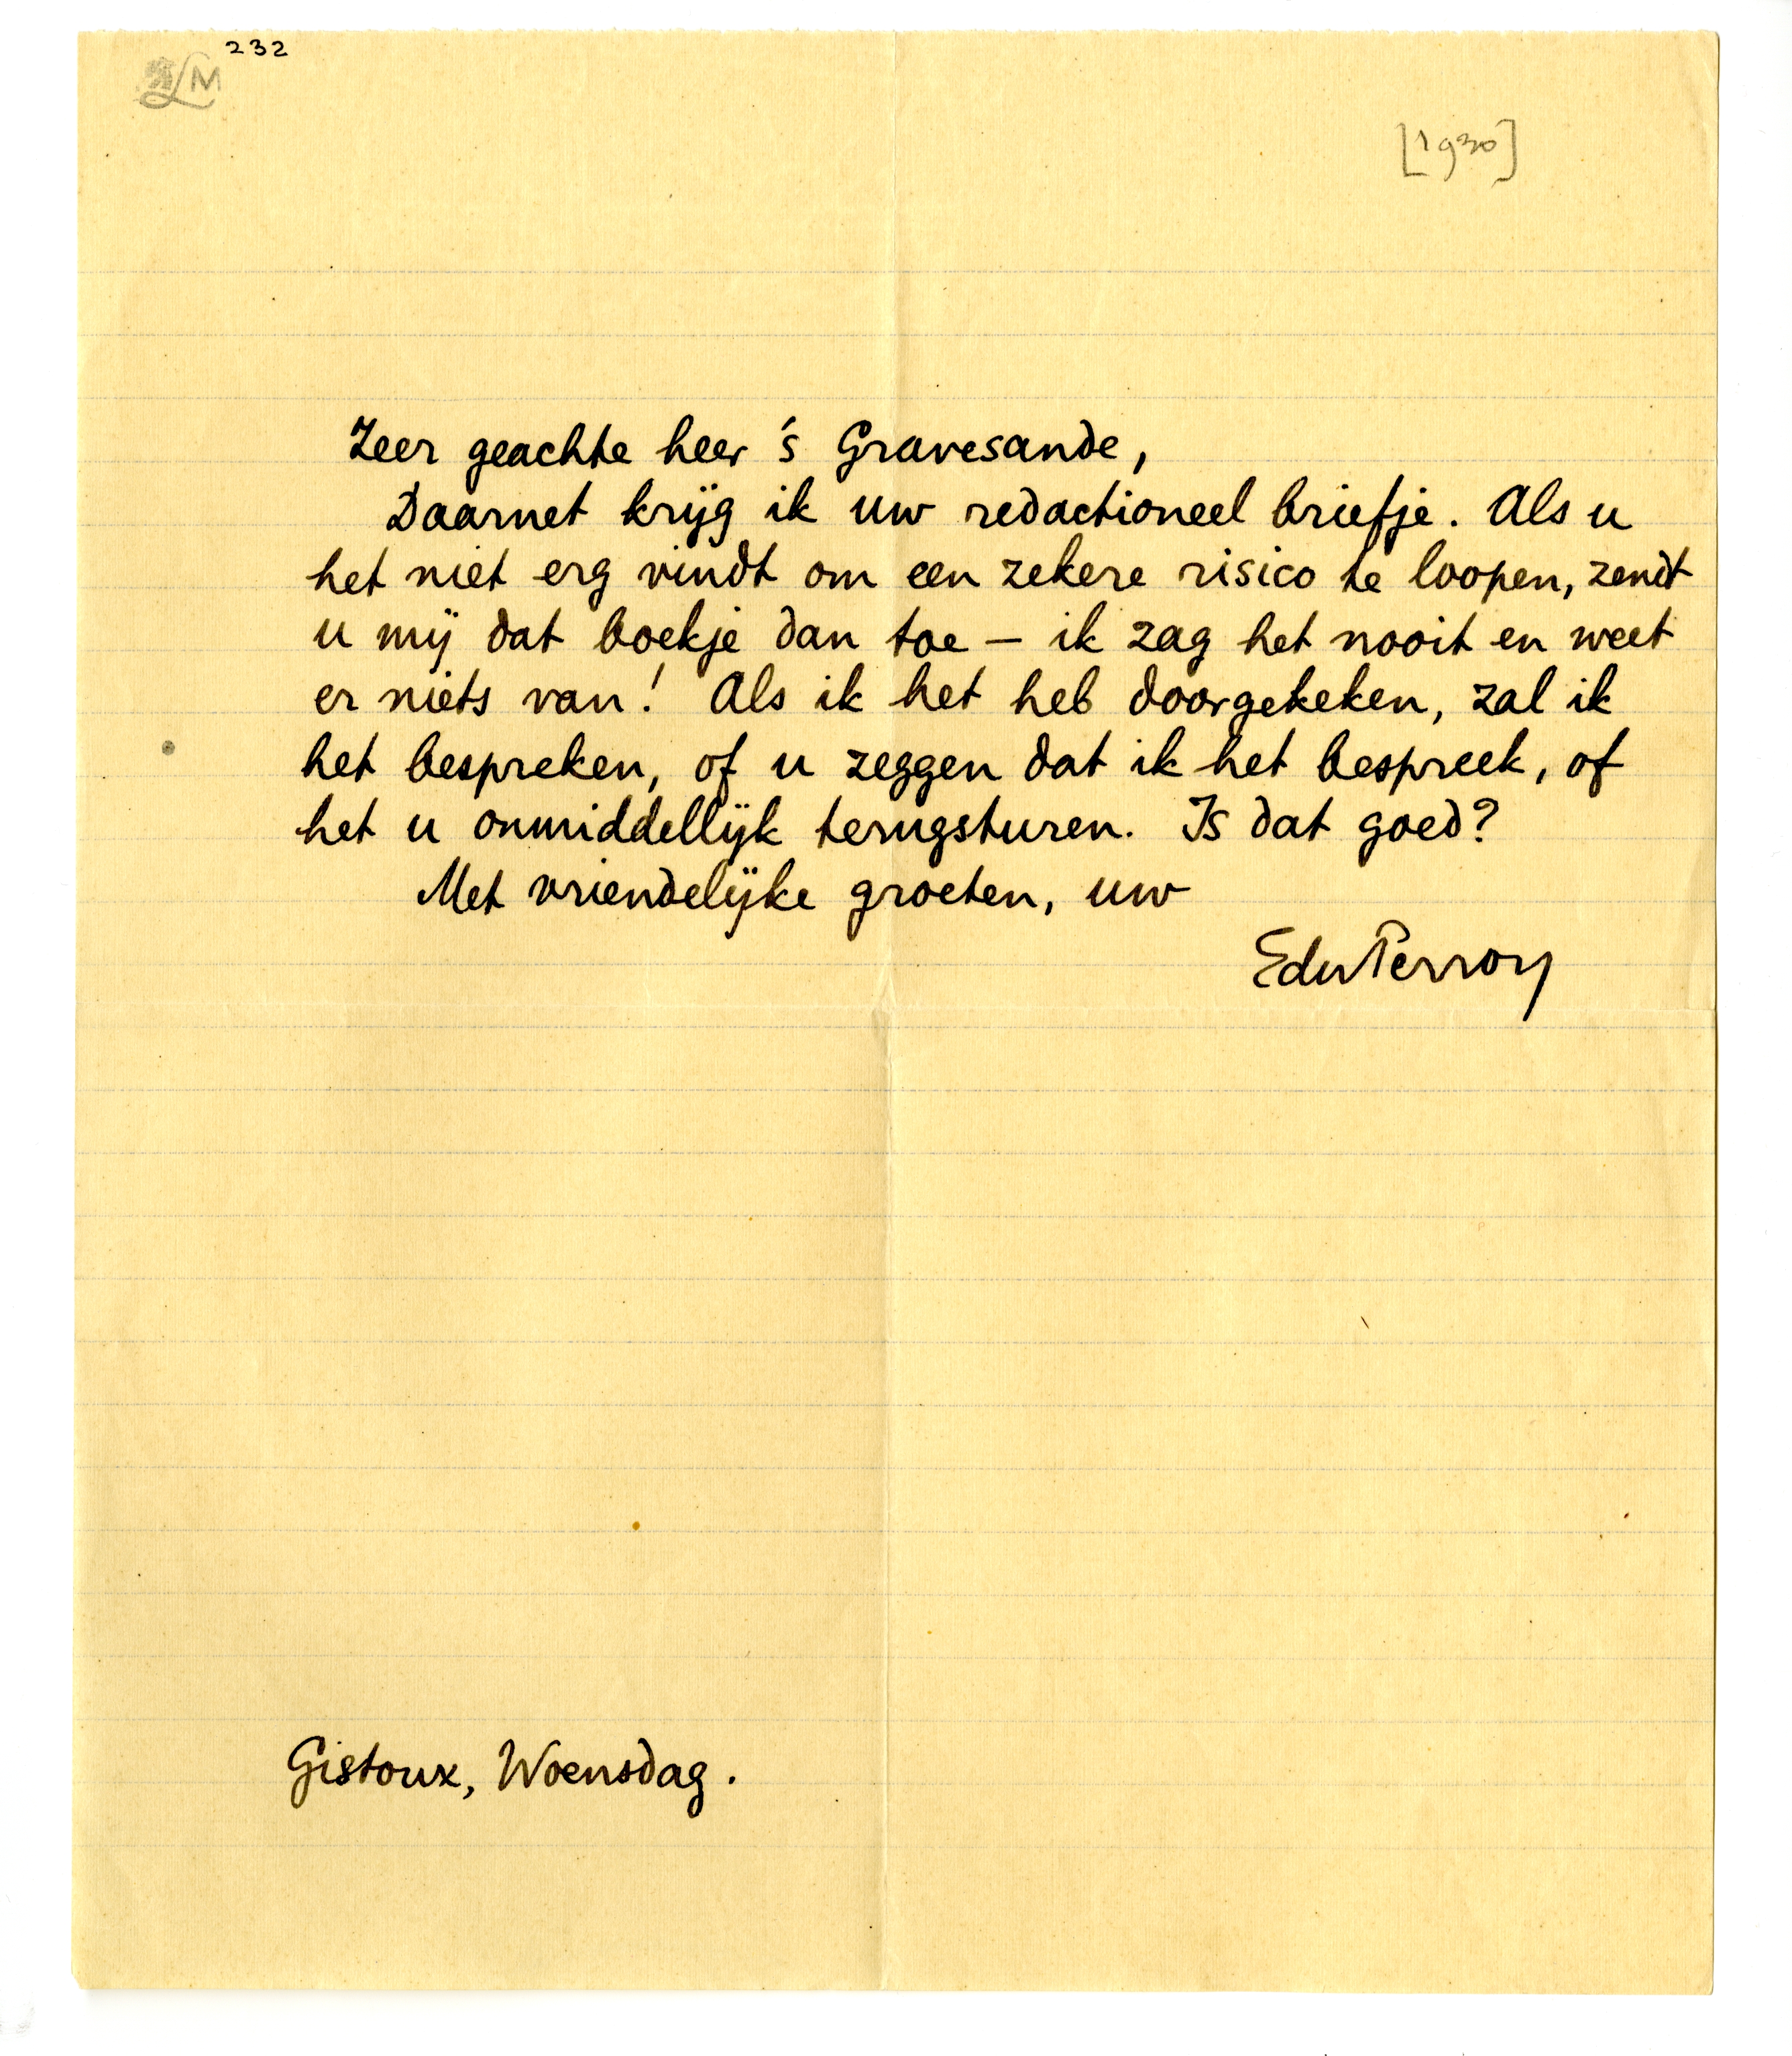 232
LM
[1930]
Zeer geachte heer 's Gravesande,
Daarnet krijg ik uw redactioneel briefje. Als u
het niet erg vindt om een zekere risico te loopen, zendt
u mij dat boekje dan toe — ik zag het nooit en weet
er niets van! Als ik het heb doorgekeken, zal ik
het bespreken, of u zeggen dat ik het bespreek, of
het u onmiddellijk terugsturen. Is dat goed?
Met vriendelijke groeten, uw
EduPerron
Gistoux, Woensdag.